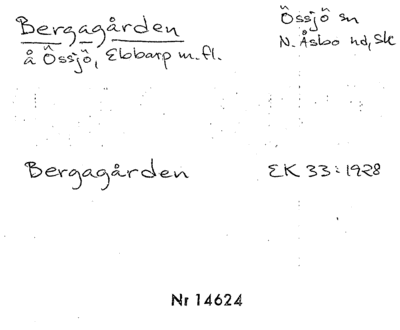 Bergagården
å Össjö, Ebbarp m.fl.
Össjö sn
N. Åsbo hd, Sk
Bergagården
EK 33:1928
Nr 14624